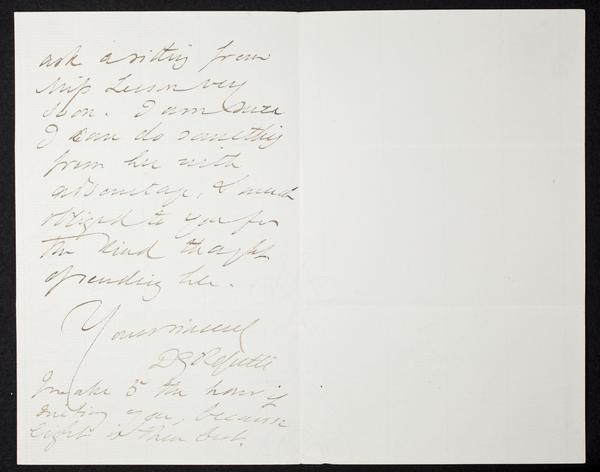 ask a sitting from
Miss Leeson very
soon. I am sure
I can do something
from her with
advantage, & much
obliged to you for
the kind thought
of sending her.
Yours sincerely
DG Rossetti
I make 5 the hour of
you, because
light is then best.